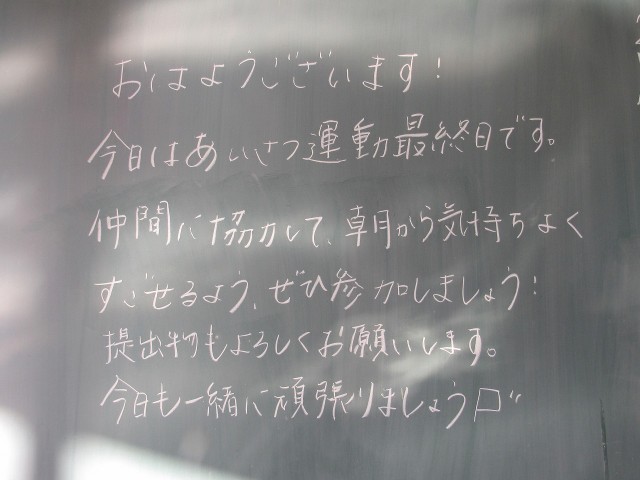 おはようございます!
今日はあいさつ運動最終日です。
仲間に協力して、朝から気持ちよく
すごせるよう、ぜひ参加しましょう!
提出物もよろしくお願いします。
今日も一緒に頑張りましょう